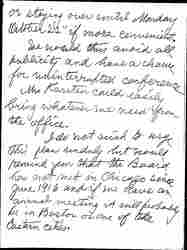 or staying over until Monday
October 22nd if more convenient.
We would thus avoid all
publicity and have a chance
for uninterrupted conference.
Mrs Karsten could easily
bring whatever she needs from
the office.
I do not wish to urge
this plan unduly but would
remind you that the Board
has not met in Chicago since
June 1916 and if we have an
annual meeting it will probably
be in Boston or one of the
Eastern cities.